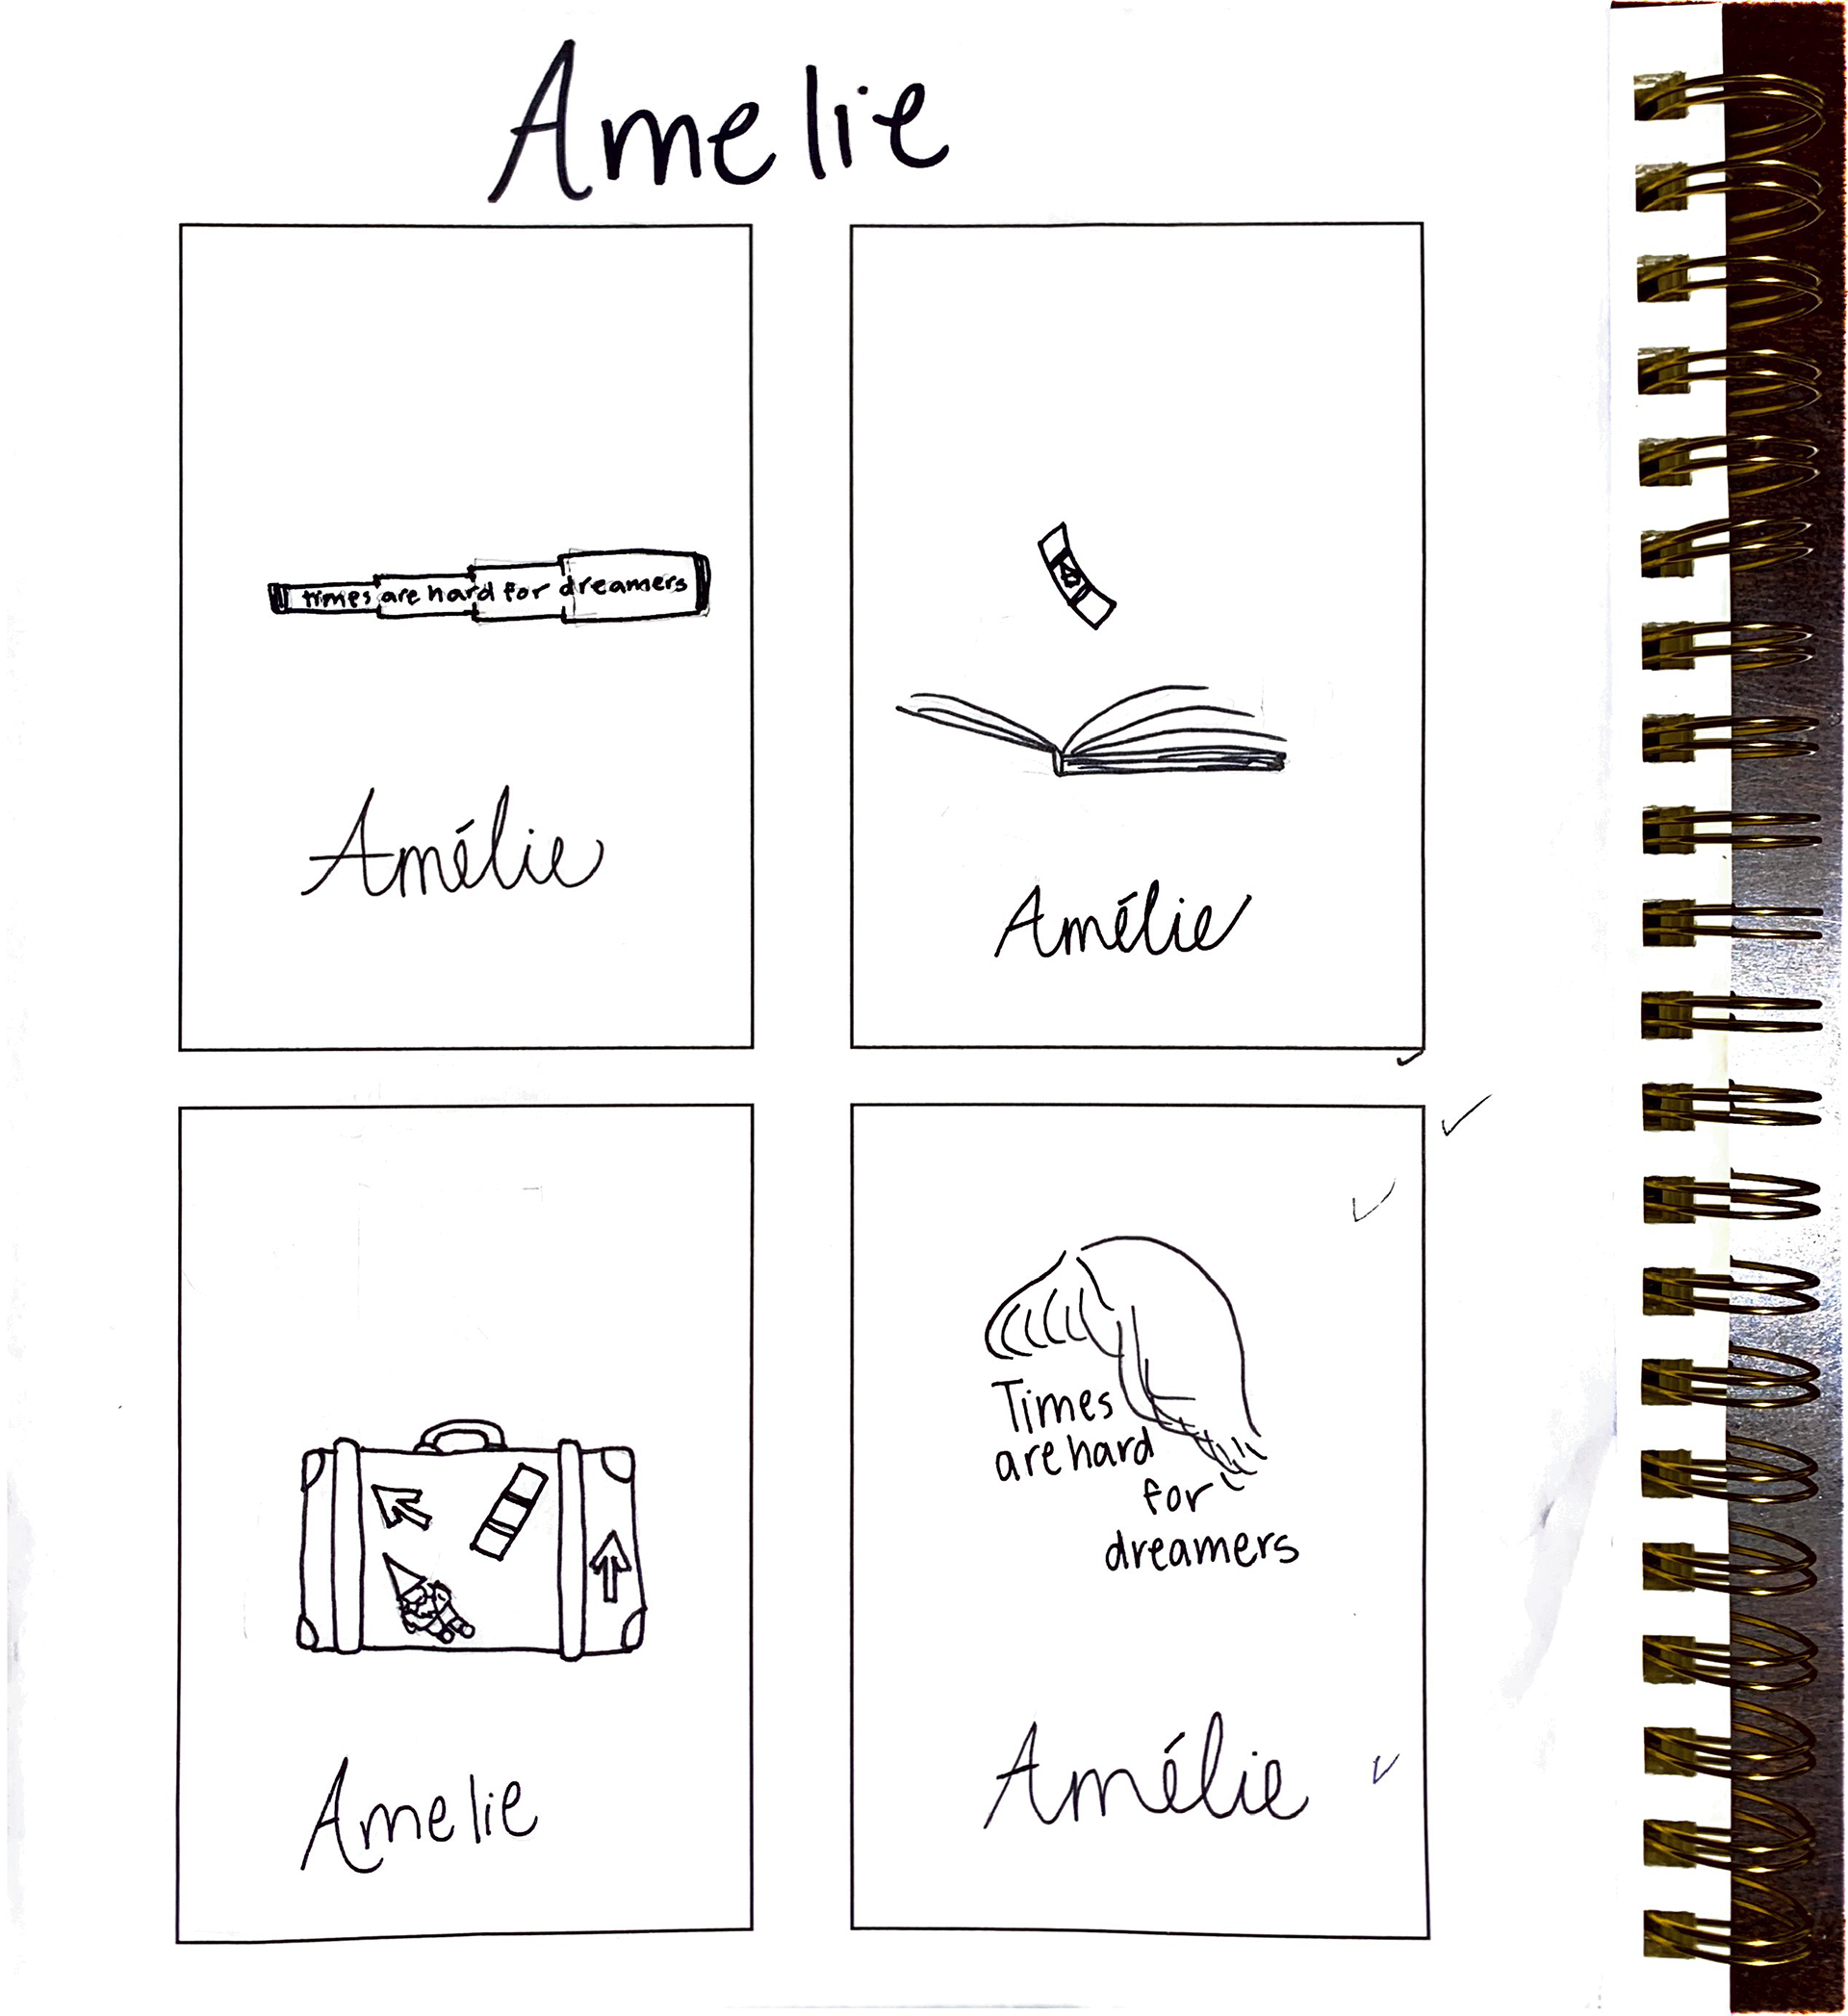 Amelie
times are hard for dreamers
Amélie
Amélie
Amelie
Times
are hard
for
dreamers
Amélie